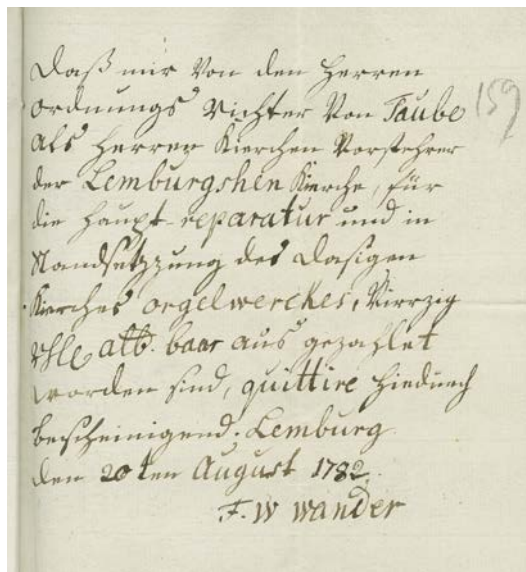 Daß mir Von den Herren
Ordnungs Richter Von Taube
Als Herren Kierchen Vorstehrer
der Lemburgshen Kierche, für
die Haupt-reparatur und in
Standsetzzung des dasigen
Kierches orgelwerckes, Vierzig
rthle alb. baar aus gezahlet
worden sind, quittire hiedurch
bescheinigend. Lemburg
den 20ten August 1782.
F. W Wander
159